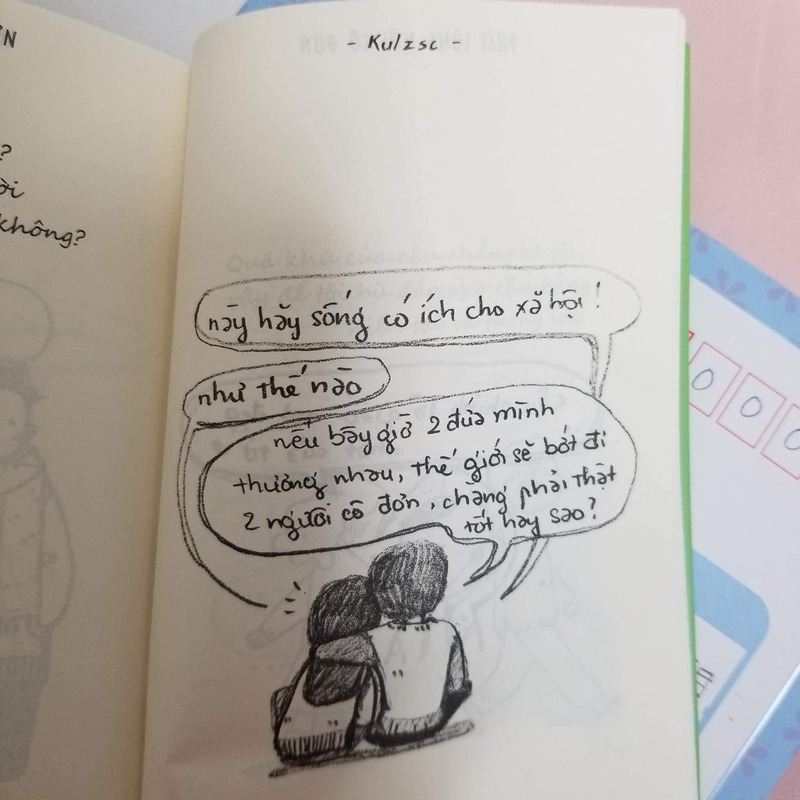 ?
không?
- Kulzsc -
này hãy sống có ích cho xã hội!
như thế nào
nếu bây giờ 2 đứa mình
thương nhau, thế giới sẽ bớt đi
2 người cô đơn, chẳng phải thật
tốt hay sao?
0
0
0